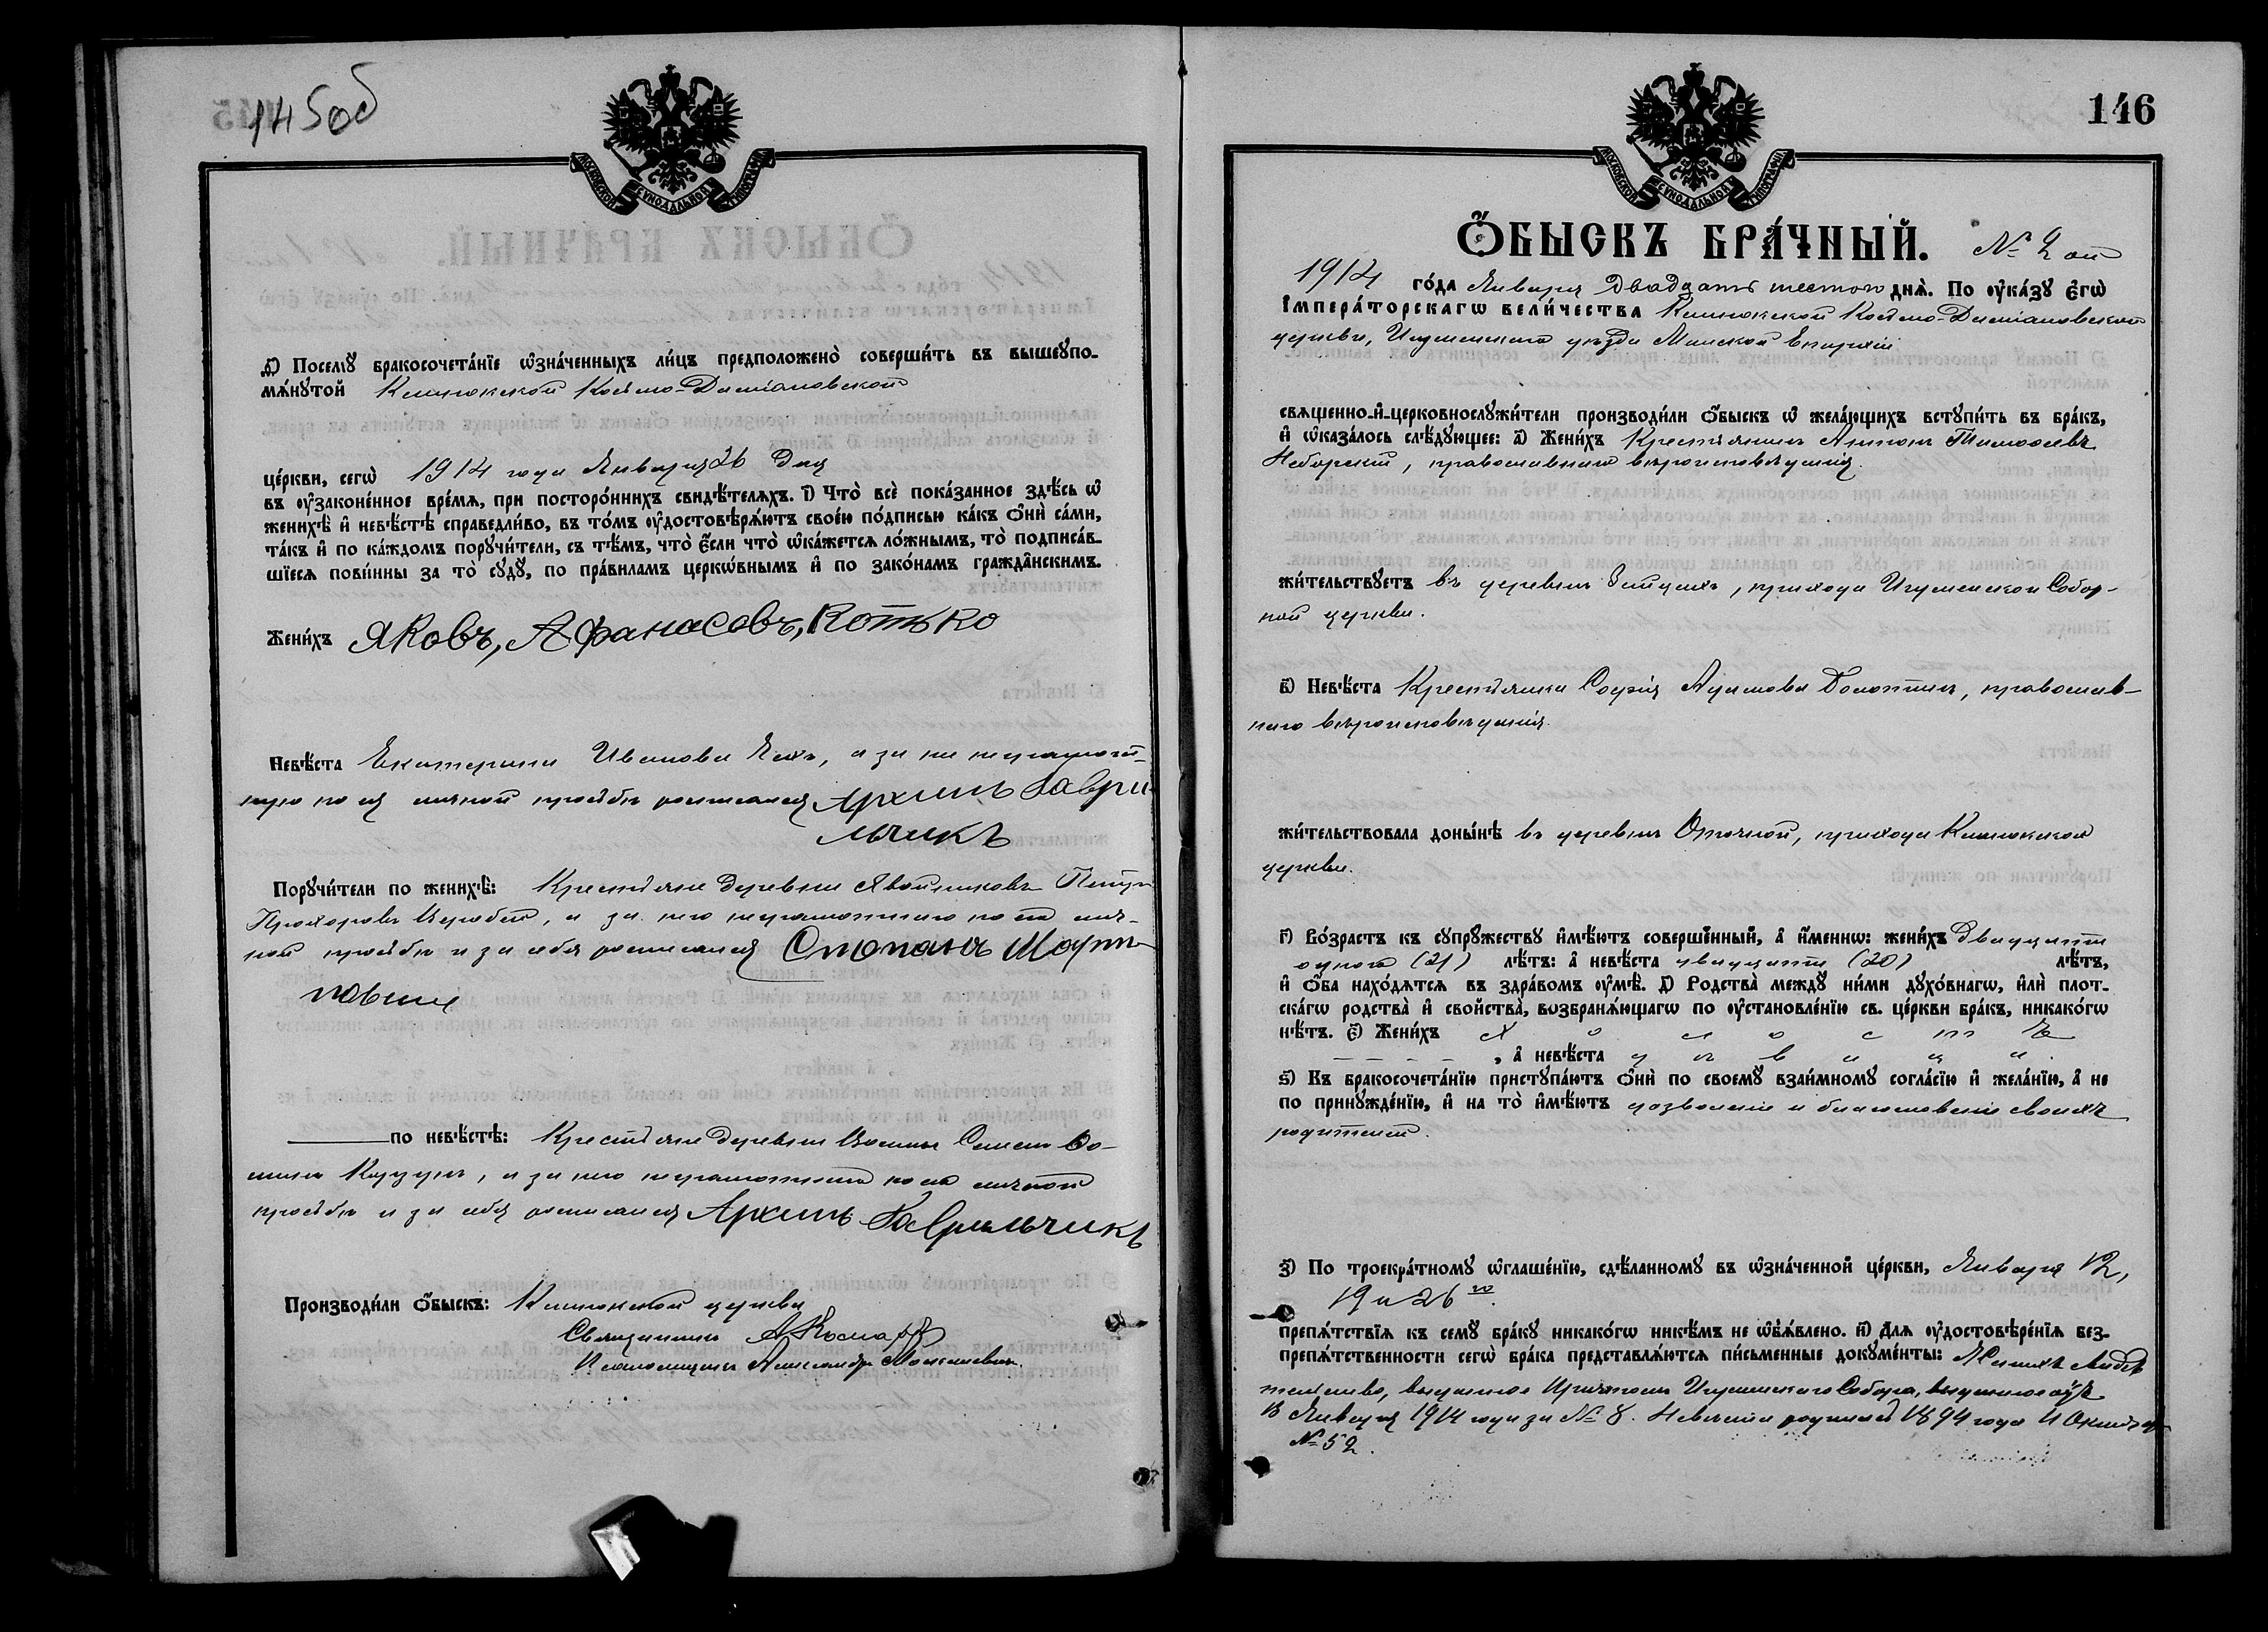 145 об
МОСКОВСКОЙ СѴНОДАЛЬНОЙ ТИПОГРАФІИ
Д҃) Посемꙋ̀ бракосочета́нїе ѡ҆зна́ченныхъ ли́цъ предположено̀ соверши́ть въ вышеꙋпо-
мѧ́нꙋтой Клинокской Космо-Даміановской
це́ркви, сегѡ̀ 1914 года Января 26 дня
въ ᲂу҆зако́ненное вре́мѧ, при посторо́ннихъ свидѣ́телѧхъ. І҃) Что̀ всѐ пока́занное здѣ́сь ѡ҆
женихѣ̀ и҆ невѣ́стѣ справедли́во, въ то́мъ ᲂу҆достовѣрѧ́ютъ свое́ю по́дписью ка́къ ѻ҆нѝ са́ми,
та́къ и҆ по ка́ждомъ порꙋчи́тели, съ тѣ́мъ, что̀ є҆́сли что̀ ѡ҆ка́жетсѧ ло́жнымъ, то̀ подписа́в-
шїесѧ пови́нны за то̀ сꙋдꙋ̀, по пра́виламъ церкѡ́внымъ и҆ по зако́намъ гражда̂нскимъ.
Жени́хъ Яковъ, Афанасовъ, Котько
Невѣ́ста Екатерина Иванова, а за не неграмот-
ную по ея личной просьбѣ росписался Архипъ Гаври-
льчикъ
Порꙋчи́тели по женихѣ̀: Крестьяне деревни Петръ
Прохоровъ Верабей, а за него неграмотнаго по его лич-
ной просьбѣ и за себя росписался Степанъ Марти-
новичъ
по невѣ́стѣ: Крестьяне деревни Семенъ Ѳо-
минъ, а за него неграмотнаго по его личной
просьбѣ и за себя росписался Архипъ Гаврильчикъ
Производи́ли ѻ҆́быскъ: Клинокской церкви
Священникъ А Комаръ
Псаломщикъ Александръ
146
МОСКОВСКОЙ СѴНОДАЛЬНОЙ ТИПОГРАФІИ
Ѻ҆́БЫСКЪ БРА́ЧНЫЙ. № 2 ой
1914 го́да Января Двадцать шестого днѧ̀. По ᲂу҆ка́зꙋ є҆гѡ̀
І҆мпера́торскагѡ вели́чества Клинокской Космо-Даміановской
церкви, Игуменскаго уѣзда Минской Епархіи
свѧщенно-и҆-церковнослꙋжи́тели производи́ли ѻ҆́быскъ ѡ҆ жела́ющихъ встꙋпи́ть въ бра́къ,
и҆ ѡ҆каза́лось слѣ́дꙋющее: а҃) Жени́хъ Крестьянинъ Антонъ Тимоѳеевъ
Наборскій, православнаго вѣроисповѣданія.
жи́тельствꙋетъ въ деревнѣ, прихода Игуменской Собор-
ной церкви.
в҃) Невѣ́ста Крестьянка Софія Адамова, православ-
наго вѣроисповѣданія.
жи́тельствовала доны́нѣ въ деревнѣ, прихода Клинокской
церкви.
г҃) Во́зрастъ къ сꙋпрꙋ́жествꙋ и҆мѣ́ютъ соверше́нный, а҆ и҆́менно: жени́хъ двадцати
одного (21) лѣ́тъ: а҆ невѣ́ста двадцати (20) лѣ́тъ,
и҆ ѻ҆́ба нахо́дѧтсѧ въ здра́вомъ ᲂу҆мѣ̀. д҃) Родства̀ междꙋ̀ ни́ми дꙋхо́внагѡ, и҆лѝ плот-
ска́гѡ родства̀ и҆ сво́йства̀, возбранѧ́ющагѡ по ᲂу҆становле́нїю св. це́ркви бра́къ, никако́гѡ
нѣ́тъ. є҃) Жени́хъ х о л о с т ъ
, а҆ невѣ́ста д ѣ в и ц а.
ѕ҃) Къ бракосочета́нїю пристꙋпа́ютъ ѻ҆нѝ по своемꙋ̀ взаи́мномꙋ согла́сїю и҆ жела́нїю, а҆ не
по принꙋжде́нїю, и҆ на то̀ и҆мѣ́ютъ дозволеніе и благословеніе своихъ
родителей.
з҃) По троекра́тномꙋ ѡ҆глаше́нїю, сдѣ́ланномꙋ въ ѡ҆зна́ченной це́ркви, Января 12,
19 и 26 го.
препѧ́тствїѧ къ семꙋ̀ бра́кꙋ никако́гѡ никѣ́мъ не ѡ҆бъѧ́влено. и҃) Длѧ ᲂу҆достовѣре́нїѧ без-
препѧ́тственности сегѡ̀ бра́ка представлѧ́ютсѧ пи́сьменные докꙋме́нты: Женихъ свидѣ-
тельство, выданное Причтомъ Игуменскаго Собора,
13 Января 1914 года за № 8. Невѣста родилась 1894 года 11 Октября
№ 52.